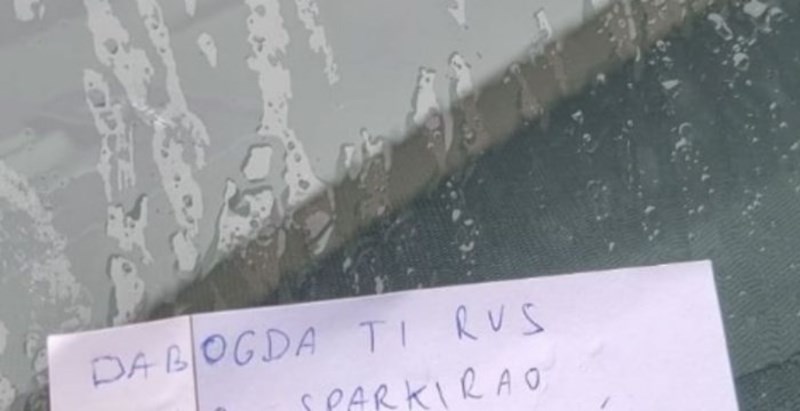 DABOGDA TI RUS
SPARKIRAO